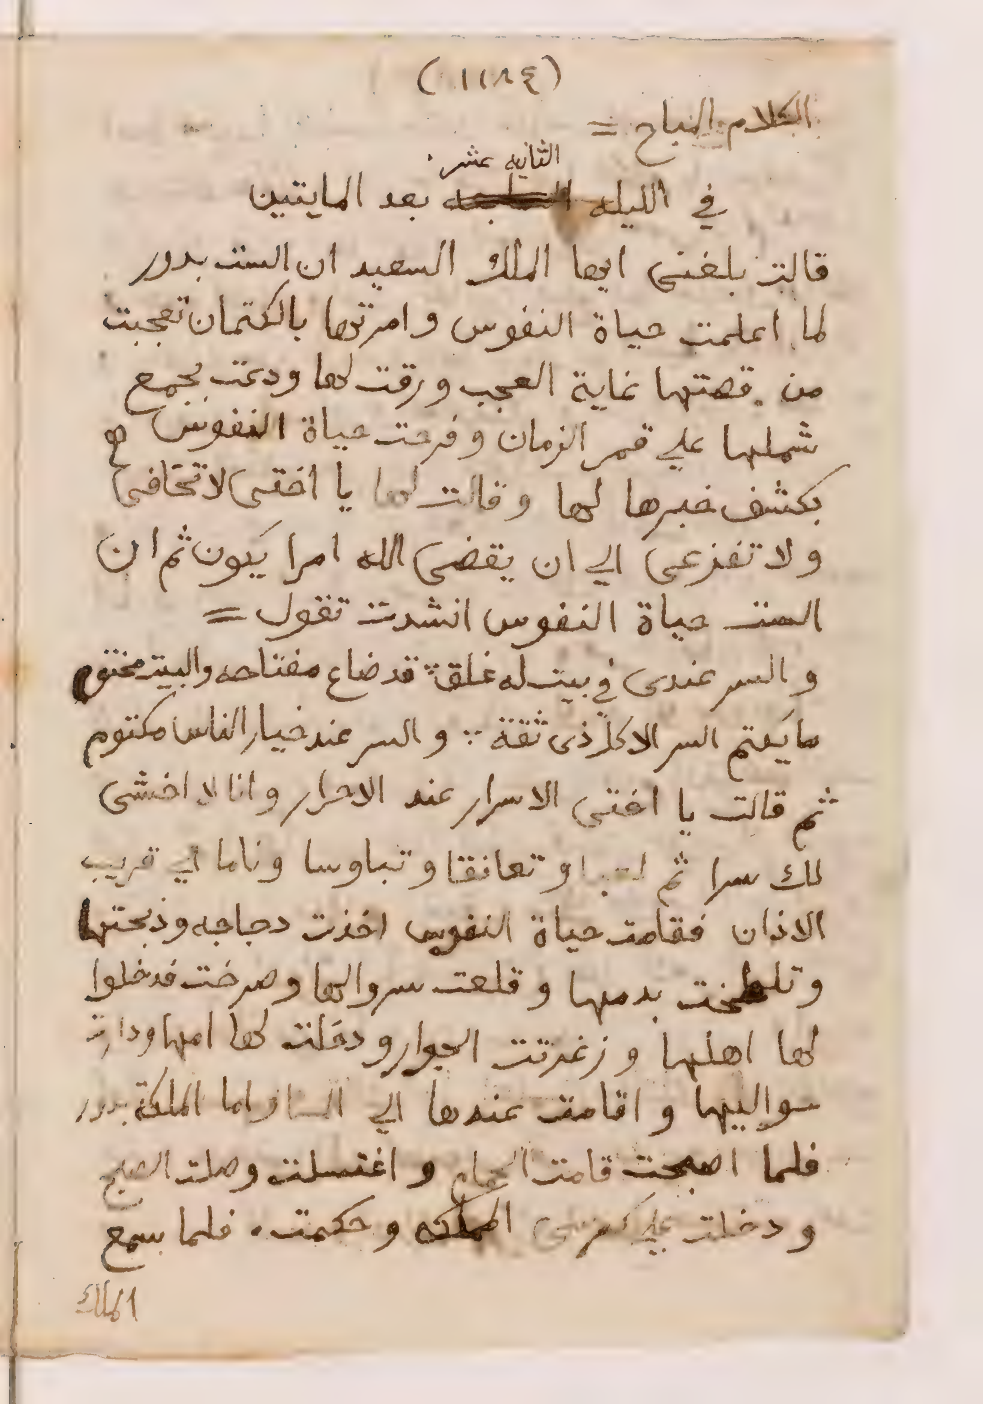 (١١٨٤)
الكلام المباح =
الثانيه عشر
في الليله بعد المايتين
قالت بلغنى ايها الملك السعيد ان الست بدور
لما اعلمت حياة النفوس وامرتها بالكتمان تعجبت
من قصتها غاية العجب ورقت لها ودعت بجمع
شملها علي قمر الزمان وفرحت حياة النفوس
بكشف خبرها لها وقالت لها يا اختى لا تخافى
ولا تفزعى الي ان يقضى الله امرا يكون ثم ان
الست حياة النفوس انشدت تقول =
والسر عندى في بيت له غلق ∴ قد ضاع مفتاحه والبيت مختوم
ما يكتم السر الا كل ذى ثقة ∴ والسر عند خيار الناس مكتوم
ثم قالت يا اختى الاسرار عند الاحرار وانا لا اخشى
لك سرا ثم لعبا وتعانقا وتباوسا وناما الي قريب
الاذان فقامت حياة النفوس اخذت دجاجه وذبحتها
وتلطخت بدمها وقلعت سروالها وصرخت فدخلوا
لها اهلها وزغرتت الجوار ودخلت لها امها ودارت
سواليها واقامت عندها الي المسا واما الملكة بدور
فلما اصبحت قامت الحمام واغتسلت وصلت الصبح
ودخلت علي كرسى المملكه وحكمت . فلما سمع
الملك